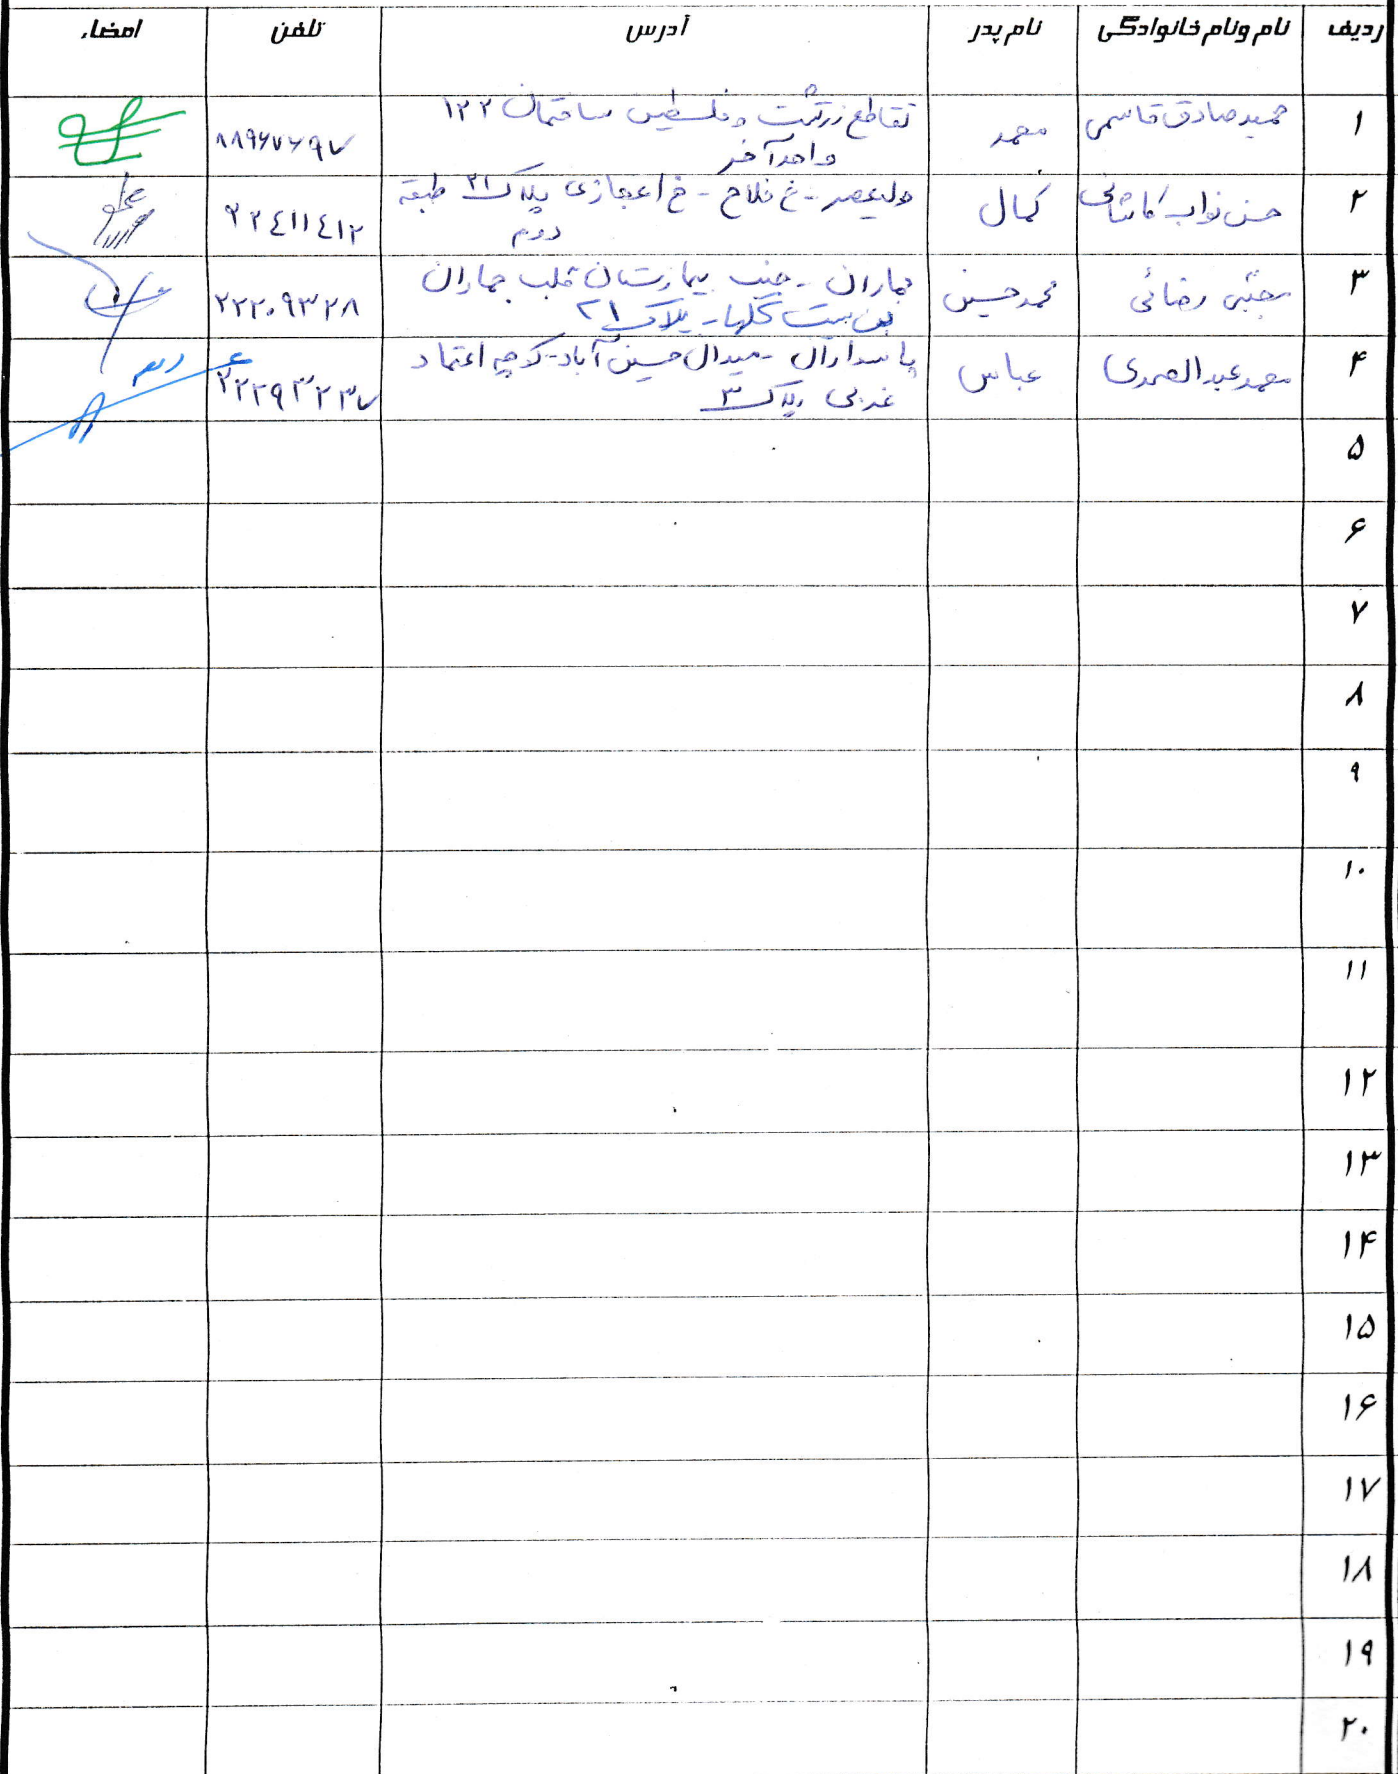 ردیف نام ونام خانوادگی نام پدر آدرس تلفن امضاء
۱ حمیدصادق قاسمی محمد تقاطع زرتشت و فلسطین ساختمان ۱۲۲ ۸۸۹۶۷۶۹۷
واحد آخر
۲ حسن نواب کاشانی کمال ولیعصر - خ فلاح - خ اعجازی پلاک ۳۱ طبقه ۲۲۴۱۱۴۱۲
دوم
۳ مجتبی رضائی محمدحسین جماران - جنب بیمارستان قلب جماران ۲۲۲۰۹۳۲۸
بن بست گلها - پلاک ۲۱
۴ محمد عبدالصمدی عباس پاسداران - میدان حسین آباد - کوچه اعتماد ۲۲۲۹۳۲۳۷
غربی پلاک ۳
۵
۶
۷
۸
۹
۱۰
۱۱
۱۲
۱۳
۱۴
۱۵
۱۶
۱۷
۱۸
۱۹
۲۰